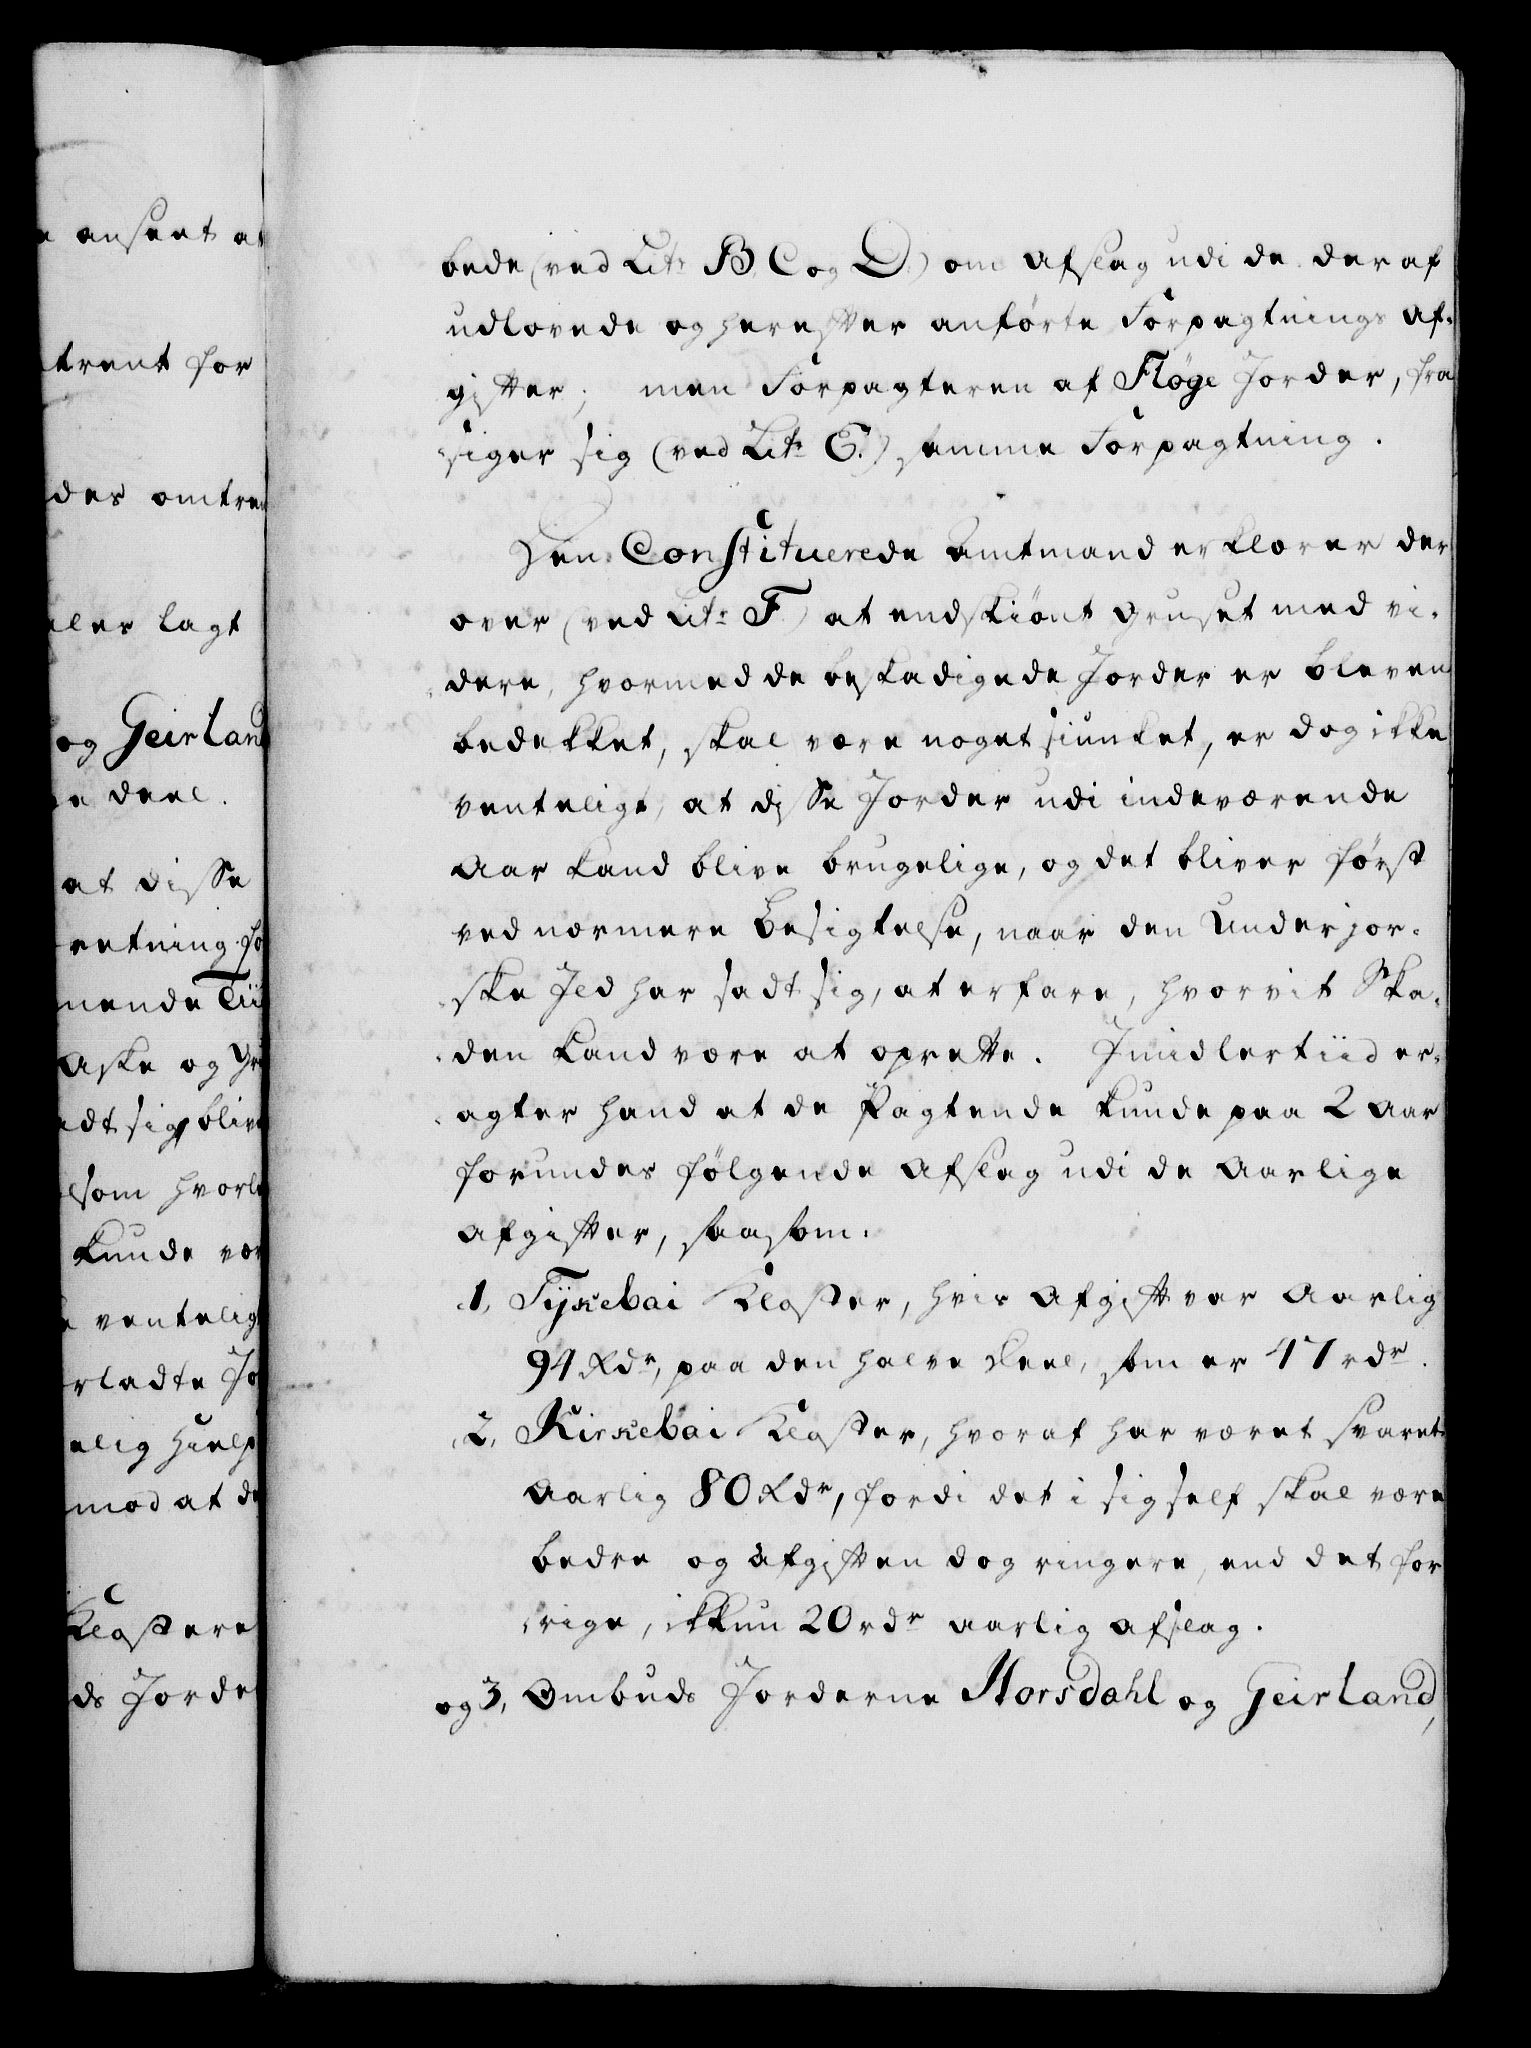 anseet at
trent for
des omtren
eles lagt
og Geirland
e deel.
at disse
retning fo
mende Tii
Aske og Gr
adt sig blive
som hvorle
kunde vær
ventelig
rladte Jo
elig Hielp
mod at de
Klostere
ds Jorde
bede (ved Litr B, C og D.) om Afslag udi de deraf
udlovede og herefter anførte Forpagtnings Af-
gifter; men Forpagteren af Fløge Jorder, fra
siger sig (ved Litr E.) samme Forpagtning.
Den Constituerede Amtmand erklærer der
over (ved Litr F.) at endskiønt Gruset med vi-
dere, hvormed de beskadigede Jorder er bleven
bedekket, skal være noget siunket, er dog ikke
venteligt, at disse Jorder udi indeværende
Aar kand blive brugelige, og det bliver først
ved nærmere Besigtelse, naar den Underjor-
ske Jld har sadt sig, at erfare, hvorvit Ska-
den kand være at oprette. Jmidlertiid er-
agter hand at de Pagtende kunde paa 2 Aar
forundes følgende Afslag udi de Aarlige
Afgifter, saasom:
1, Tykebai Kloster, hvis Afgift var Aarlig
94 Rdr, paa den halve Deel, som er 47 rdr.
2, Kirkebai Kloster, hvoraf har været svaret
Aarlig 80 Rdr, fordi det i sig self skal være
bedre og Afgiften dog ringere, end det for
rige, ikkun 20 rdr aarlig Afslag.
og 3, Ombuds Jorderne Horsdahl og Geirland,